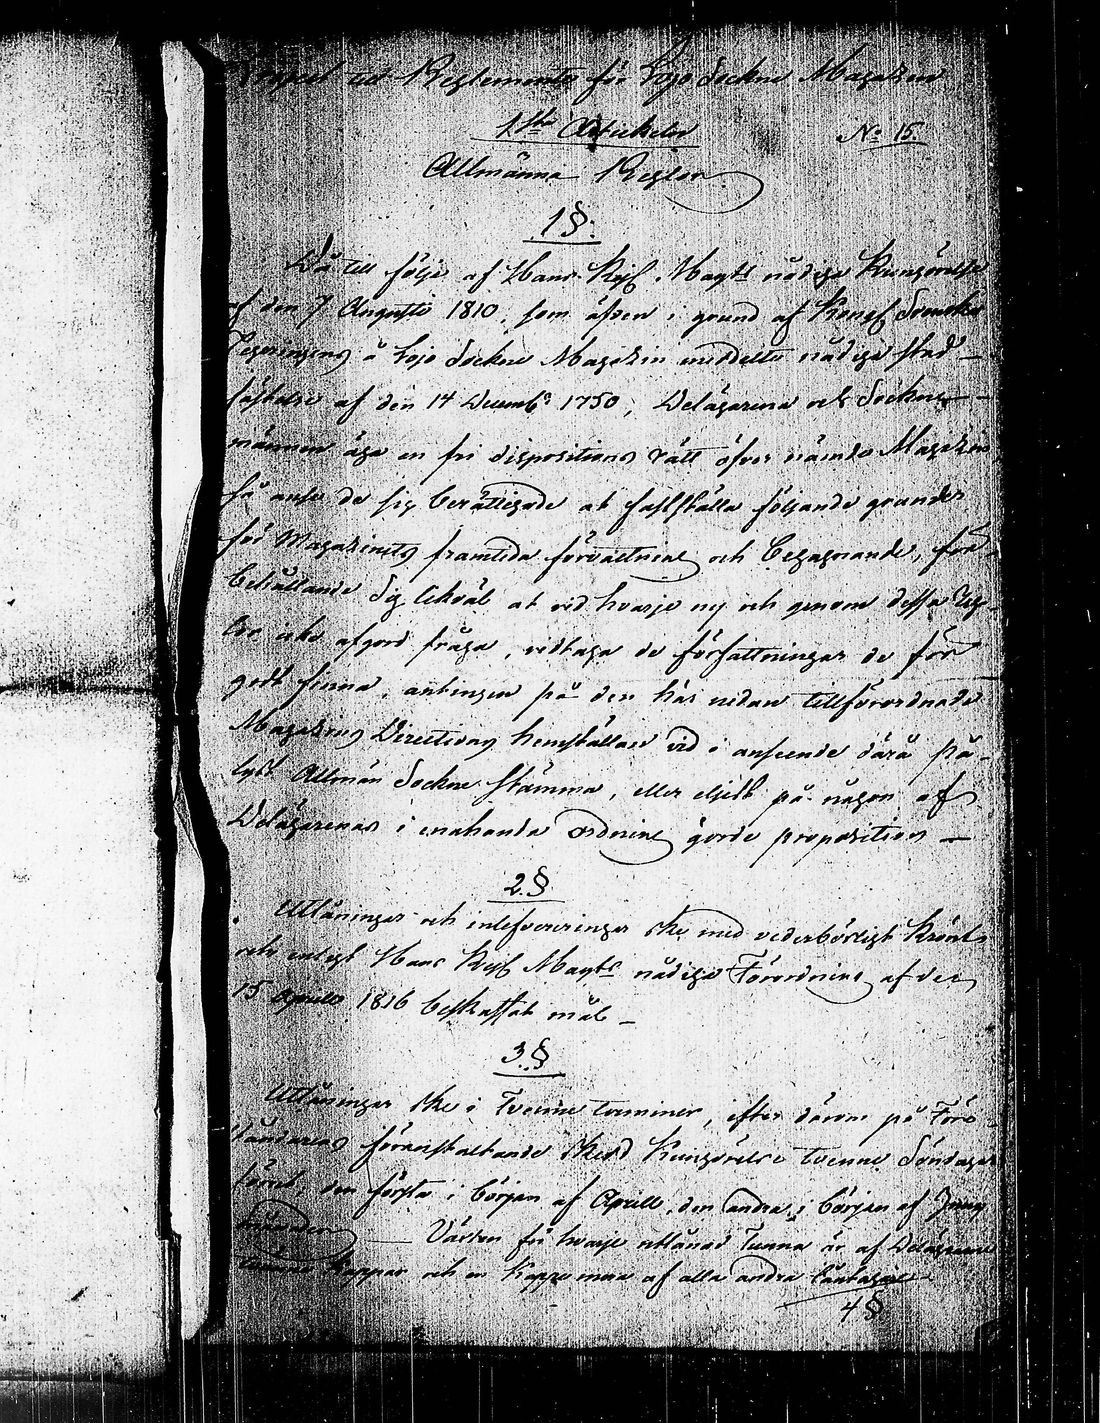 till Reglemente för Lojo Sockne Magazin
1sta Artickelen
No 15.
Allmänna Regler
1 §.
Då till följe af Hans Kejs. Mayts nådiga Kungörelse
af den 7 Augusti 1810, som äfven i grund af Kongl Svenska
Regeringens å Lojo Sockne Magazin meddelte nådiga stad-
fästelse af den 14 Decembr 1750, Delägarena och Sockne-
männen äga en fri dispositions rätt öfver nämde Magazin
så anse de sig berättigade at fastställa följande grunder
för Magazinets framtida förvaltning och begagnande, för-
behållande sig likväl at vid hvarje ny och genom dessa Reg-
lor icke afgord fråga, vidtaga de författningar de för
godt finna, antingen på den här nedan tillförordnade
Magazins Directions hemställan vid i anseende därå på-
lyst Allmän Sockne stämma, eller eljest på någon af
Delägarenas i enahanda ordning gorde proposition —
2. §
Utlåningar och inlefvereringar ske med vederbörligt Krönt
och enligt Hans Kejs Mayts nådiga Förordning af den
15 Aprill 1816 beskaffat mål —
3. §
Utlåningar ske i Tvenne terminer, efter därom på Före-
ståndarens föranstaltande skedd Kungörelse tvenne Söndagar
förut, den första i början af Aprill, den andra i början af Junii
månader — Växten för hvarje utlånad Tunna är af Delägarene
kappar och en Kappe mera af alla andra låntagare —
4 §.